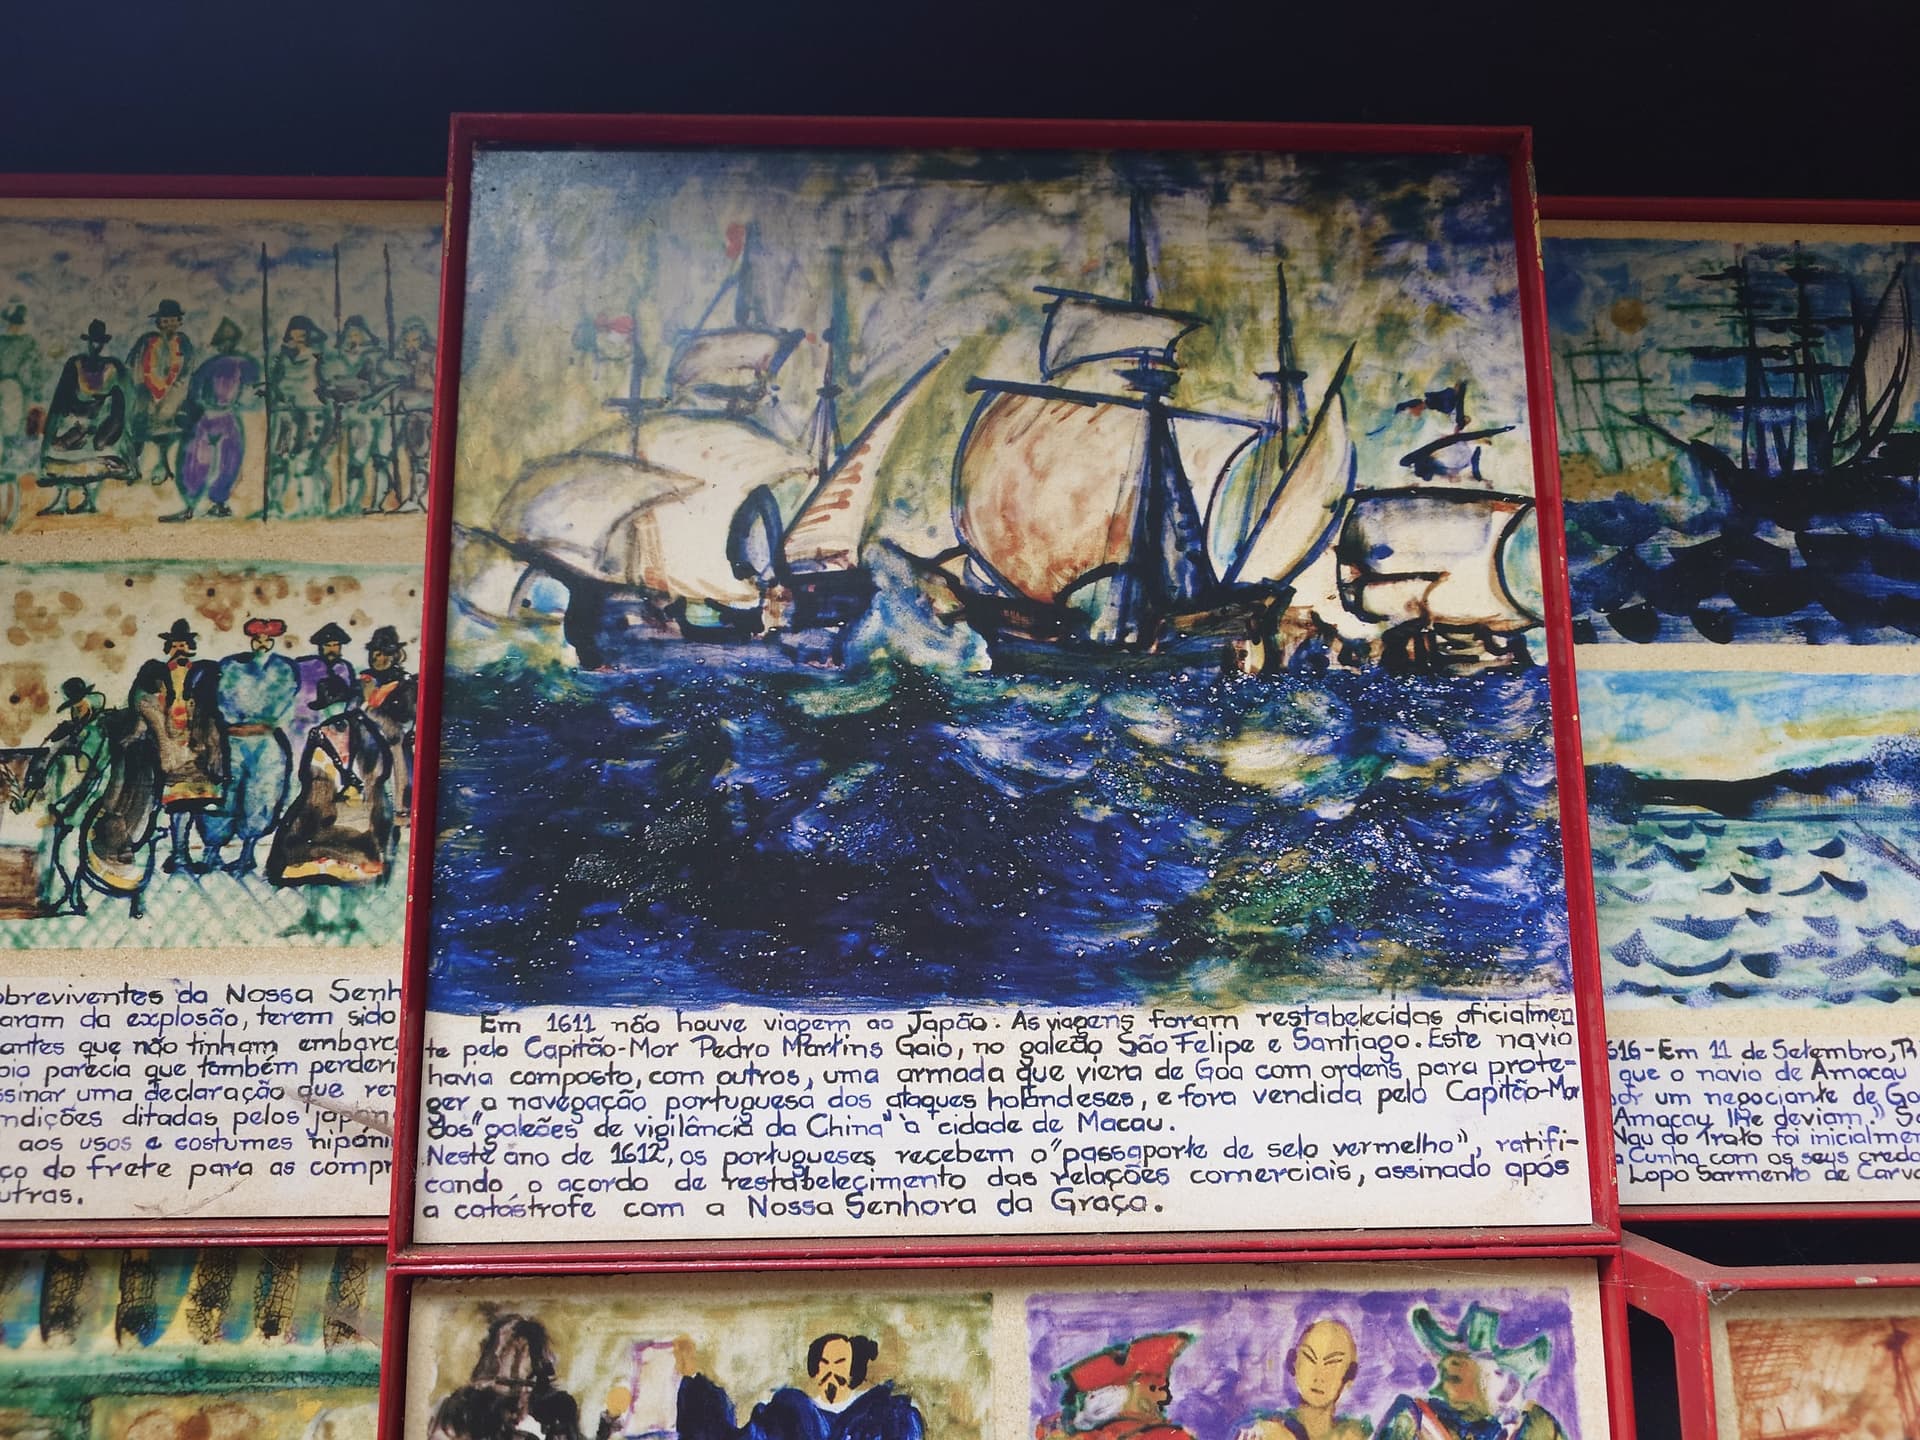 obreviventes da Nossa Senh
aram da explosão, terem sido
antes que não tinham embarc
oio parecia que também perderi
ssinar uma declaração que re
ndições ditadas pelos japon
aos usos e costumes niponi
ço do frete para as compr
utras.
Em 1611 não houve viagem ao Japão. As viagens foram restabelecidas oficialmen
te pelo Capitão-Mor Pedro Martins Gaio, no galeão São Felipe e Santiago. Este navio
havia composto, com outros, uma armada que viera de Goa com ordens para prote-
ger a navegação portuguesa dos ataques holandeses, e fora vendida pelo Capitão-Mor
dos "galeões de vigilância da China" à cidade de Macau.
Neste ano de 1612, os portugueses recebem o "passaporte de selo vermelho", ratifi-
cando o acordo de restabelecimento das relações comerciais, assinado após
a catástrofe com a Nossa Senhora da Graça.
616-Em 11 de Setembro,
que o navio de Amacau
or um negociante de Go
Amacau lhe deviam."
Nau do Trato foi inicialmen
a Cunha com os seus credo
Lopo Sarmento de Carva